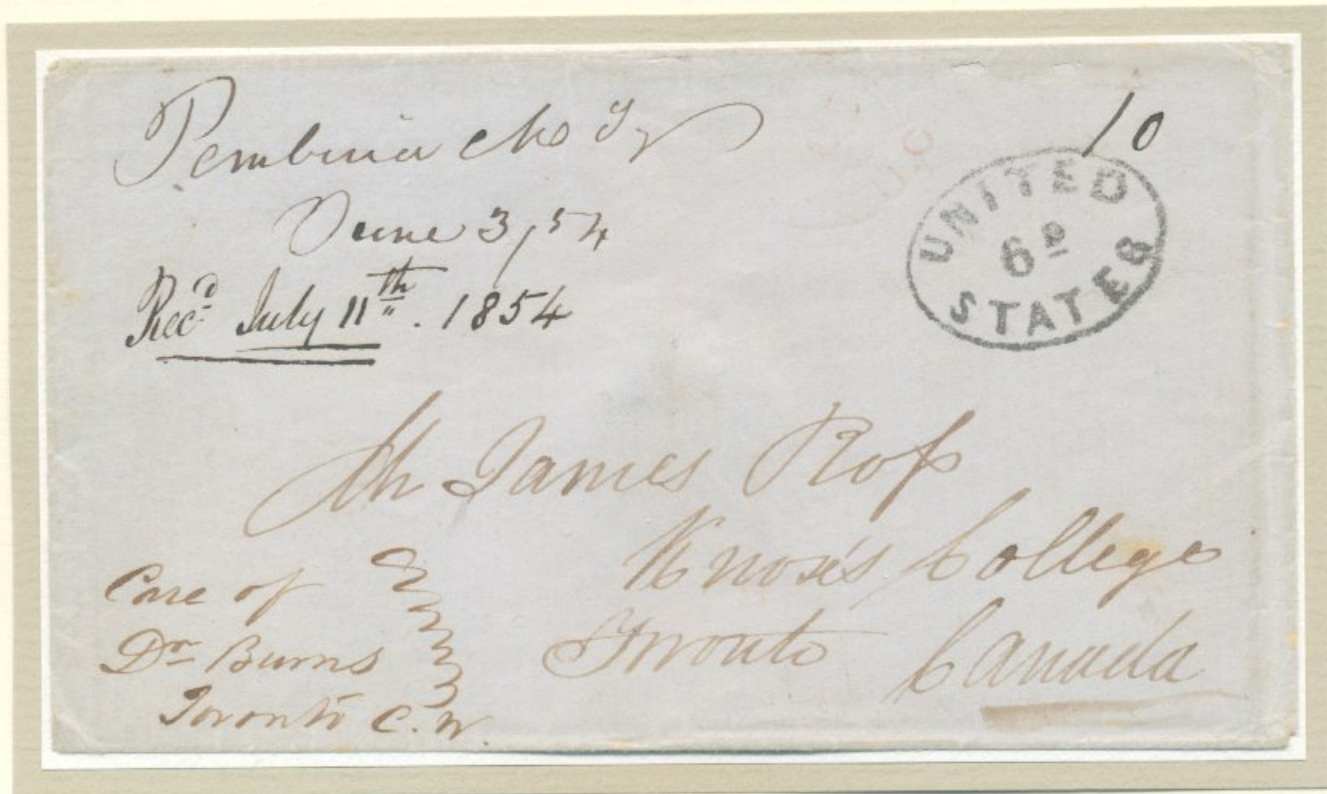 Pembina Mo Ty
June 3/54
Recd July 11th. 1854
10
UNITED
6D
STATES
Mr James Ross
Knox's College
Toronto Canada
Care of
Dr Burns
Toronto C.W.